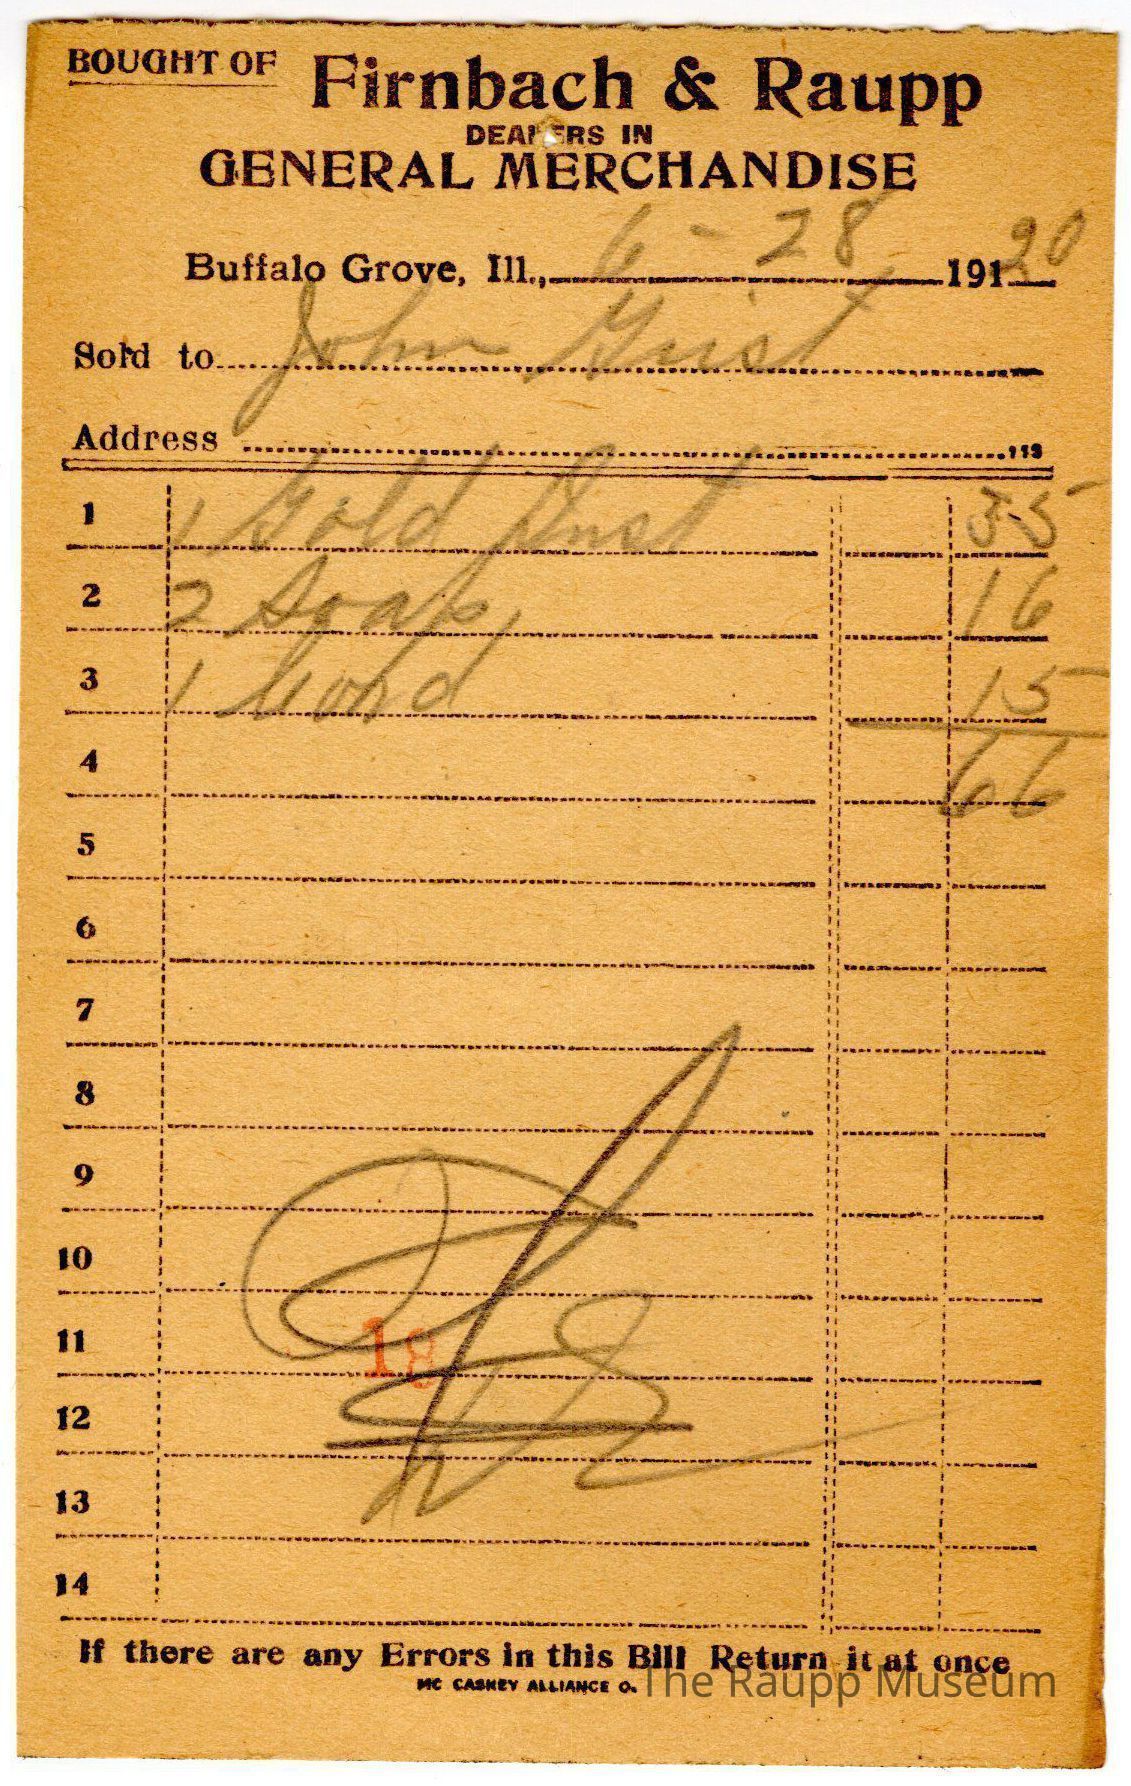 BOUGHT OF Firnbach & Raupp
DEALERS IN
GENERAL MERCHANDISE
Buffalo Grove, Ill., 6-28 191 20
Sold to John Gust
Address
1 1 Gold Dust 35
2 2 Soap 16
3 1 Cord 15
4 66
5
6
7
8
9
10
11 18
12
13
14
If there are any Errors in this Bill Return it at once
MC CASKEY ALLIANCE O.
The Raupp Museum